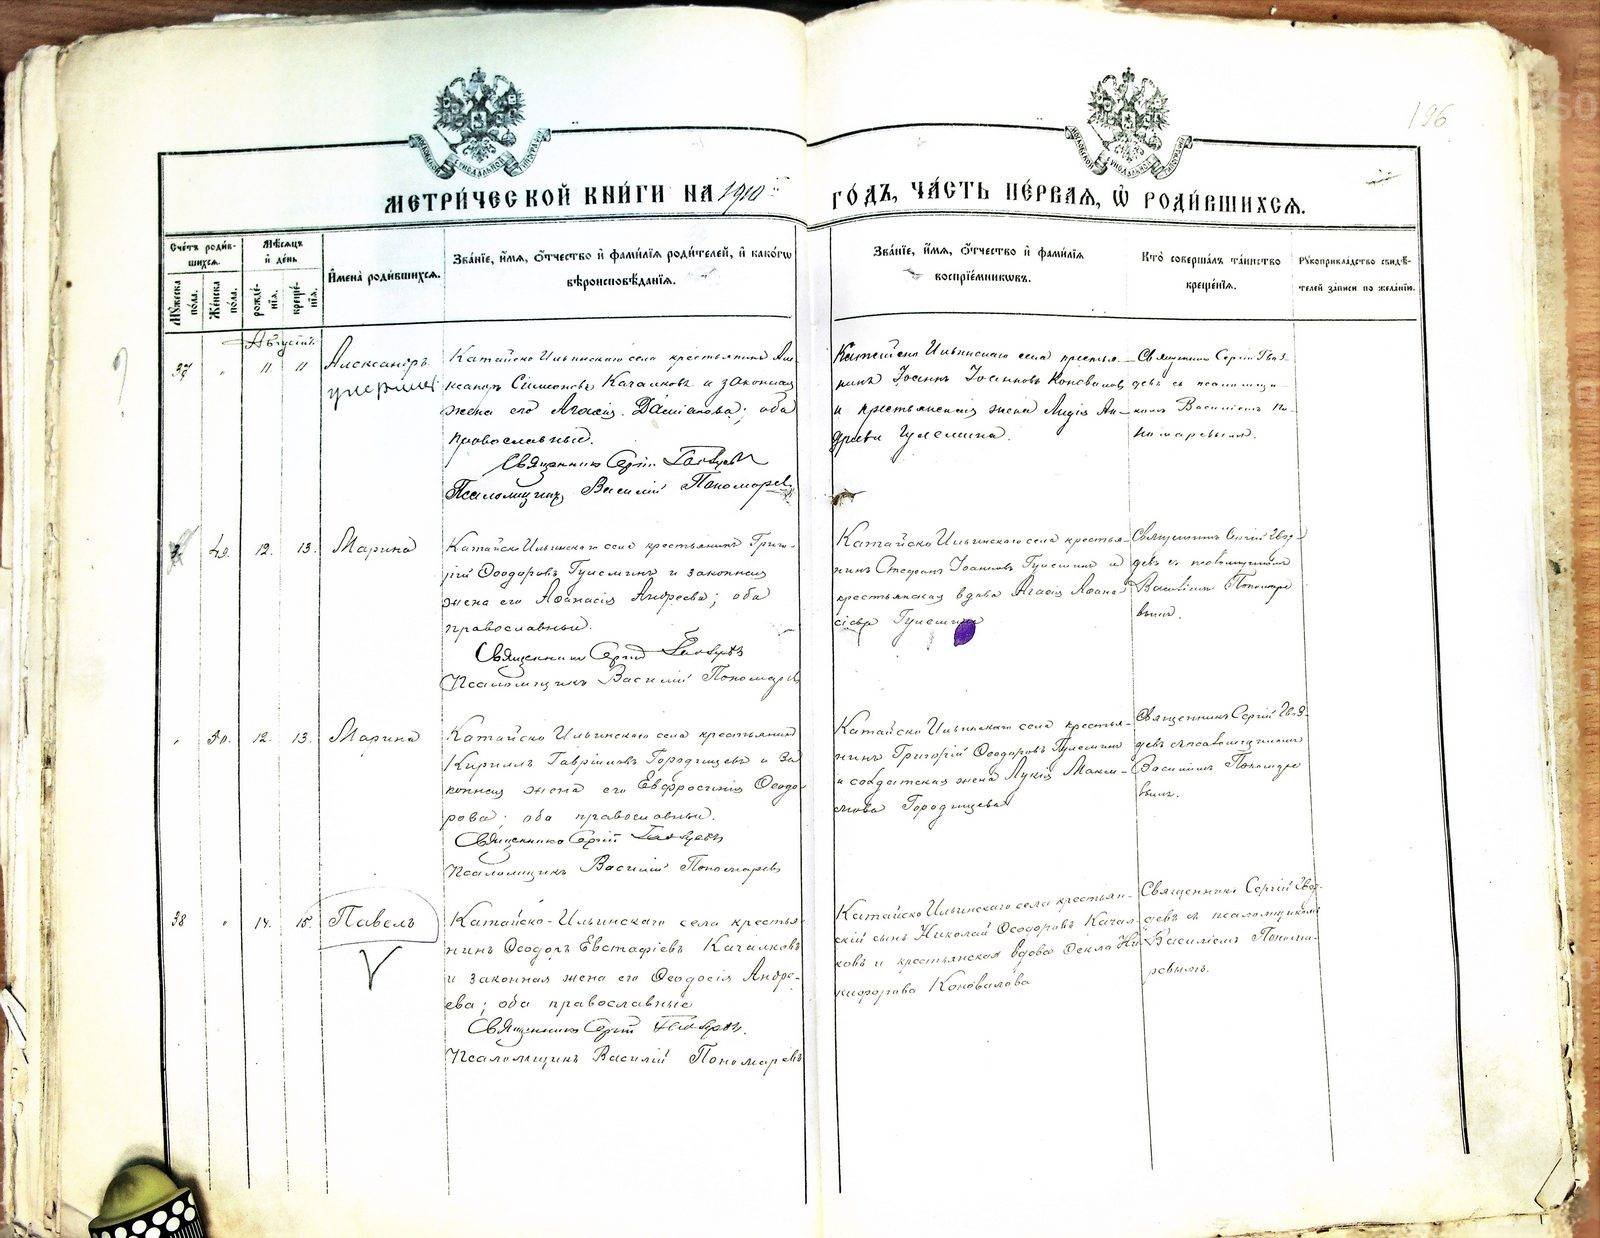 196
МЕТРИ́ЧЕСКОЙ КНИ́ГИ НА 1910 ГО́ДЪ, ЧА́СТЬ ПЕ́РВАЯ, Ѡ҆ РОДИ́ВШИХСЯ.
Сче́тъ роди́вшихся.
Му́жеска по́ла.
Же́нска по́ла.
Мѣ́сяцъ и҆ де́нь
рожде́нїя.
креще́нїя.
И҆мена̀ роди́вшихся.
Зва́нїе, и҆́мя, ѻ҆́тчество и҆ фами́лїя роди́телей, и҆ како́гѡ вѣроисповѣ́данїя.
Зва́нїе, и҆́мя, ѻ҆́тчество и҆ фами́лїя воспрїе́мникѡвъ.
Кто̀ соверша́лъ та́инство креще́нїя.
Рукоприкла́дство свидѣ́телей за́писи по жела́нїю.
Августъ
37 " 11 11 Александръ
умерший
Катайско Ильинскаго села крестьянинъ Але-
ксандръ Симеоновъ Качалковъ и законная
жена его Агаѳія Даміанова; оба
православные.
Священникъ Сергій
Псаломщикъ Василій Пономаревъ
Катайско Ильинскаго села крестья-
нинъ Іоаннъ Іоанновъ Коноваловъ
и крестьянская жена Лидія Ан-
дреева Гулемина.
Священникъ Сергій Гвоз-
девъ съ псаломщи-
комъ Василіемъ По-
номаревымъ.
49. 12. 13. Марина
Катайско Ильинскаго села крестьянинъ Григо-
рій Ѳеодоровъ Гулеминъ и законная
жена его Аѳанасія Андреева; оба
православные.
Священникъ Сергій
Псаломщикъ Василій Пономаревъ
Катайско Ильинскаго села крестья-
нинъ Стефанъ Іоанновъ Гулеминъ и
крестьянская вдова Агаѳія Аѳана-
сіева Гулемина
Священникъ Сергій Гвоз-
девъ съ псаломщикомъ
Василіемъ Пономаре-
вымъ.
" 50. 12. 13. Марина
Катайско Ильинскаго села крестьянинъ
Кириллъ Гавріиловъ Городищевъ и за
конная жена его Евфросинія Ѳеодо-
рова; оба православные.
Священникъ Сергій
Псаломщикъ Василій Пономаревъ
Катайско Ильинскаго села крестья-
нинъ Григорій Ѳеодоровъ Гулеминъ
и солдатская жена Лукія Макси-
мова Городищева
Священникъ Сергій Гвоз-
девъ съ псаломщикомъ
Василіемъ Пономаре
вымъ.
38 " 14. 15. Павелъ
Катайско-Ильинскаго села крестья-
нинъ Ѳеодоръ Евстафіевъ Качалковъ
и законная жена его Ѳеодосія Андре-
ева; оба православные
Священникъ Сергій
Псаломщикъ Василій Пономаревъ
Катайско Ильинскаго села крестьян-
скій сынъ Николай Ѳеодоровъ Качал-
ковъ и крестьянская вдова Ѳекла Ни-
кифорова Коновалова
Священникъ Сергій Гвоз-
девъ съ псаломщикомъ
Василіемъ Понома-
ревымъ.